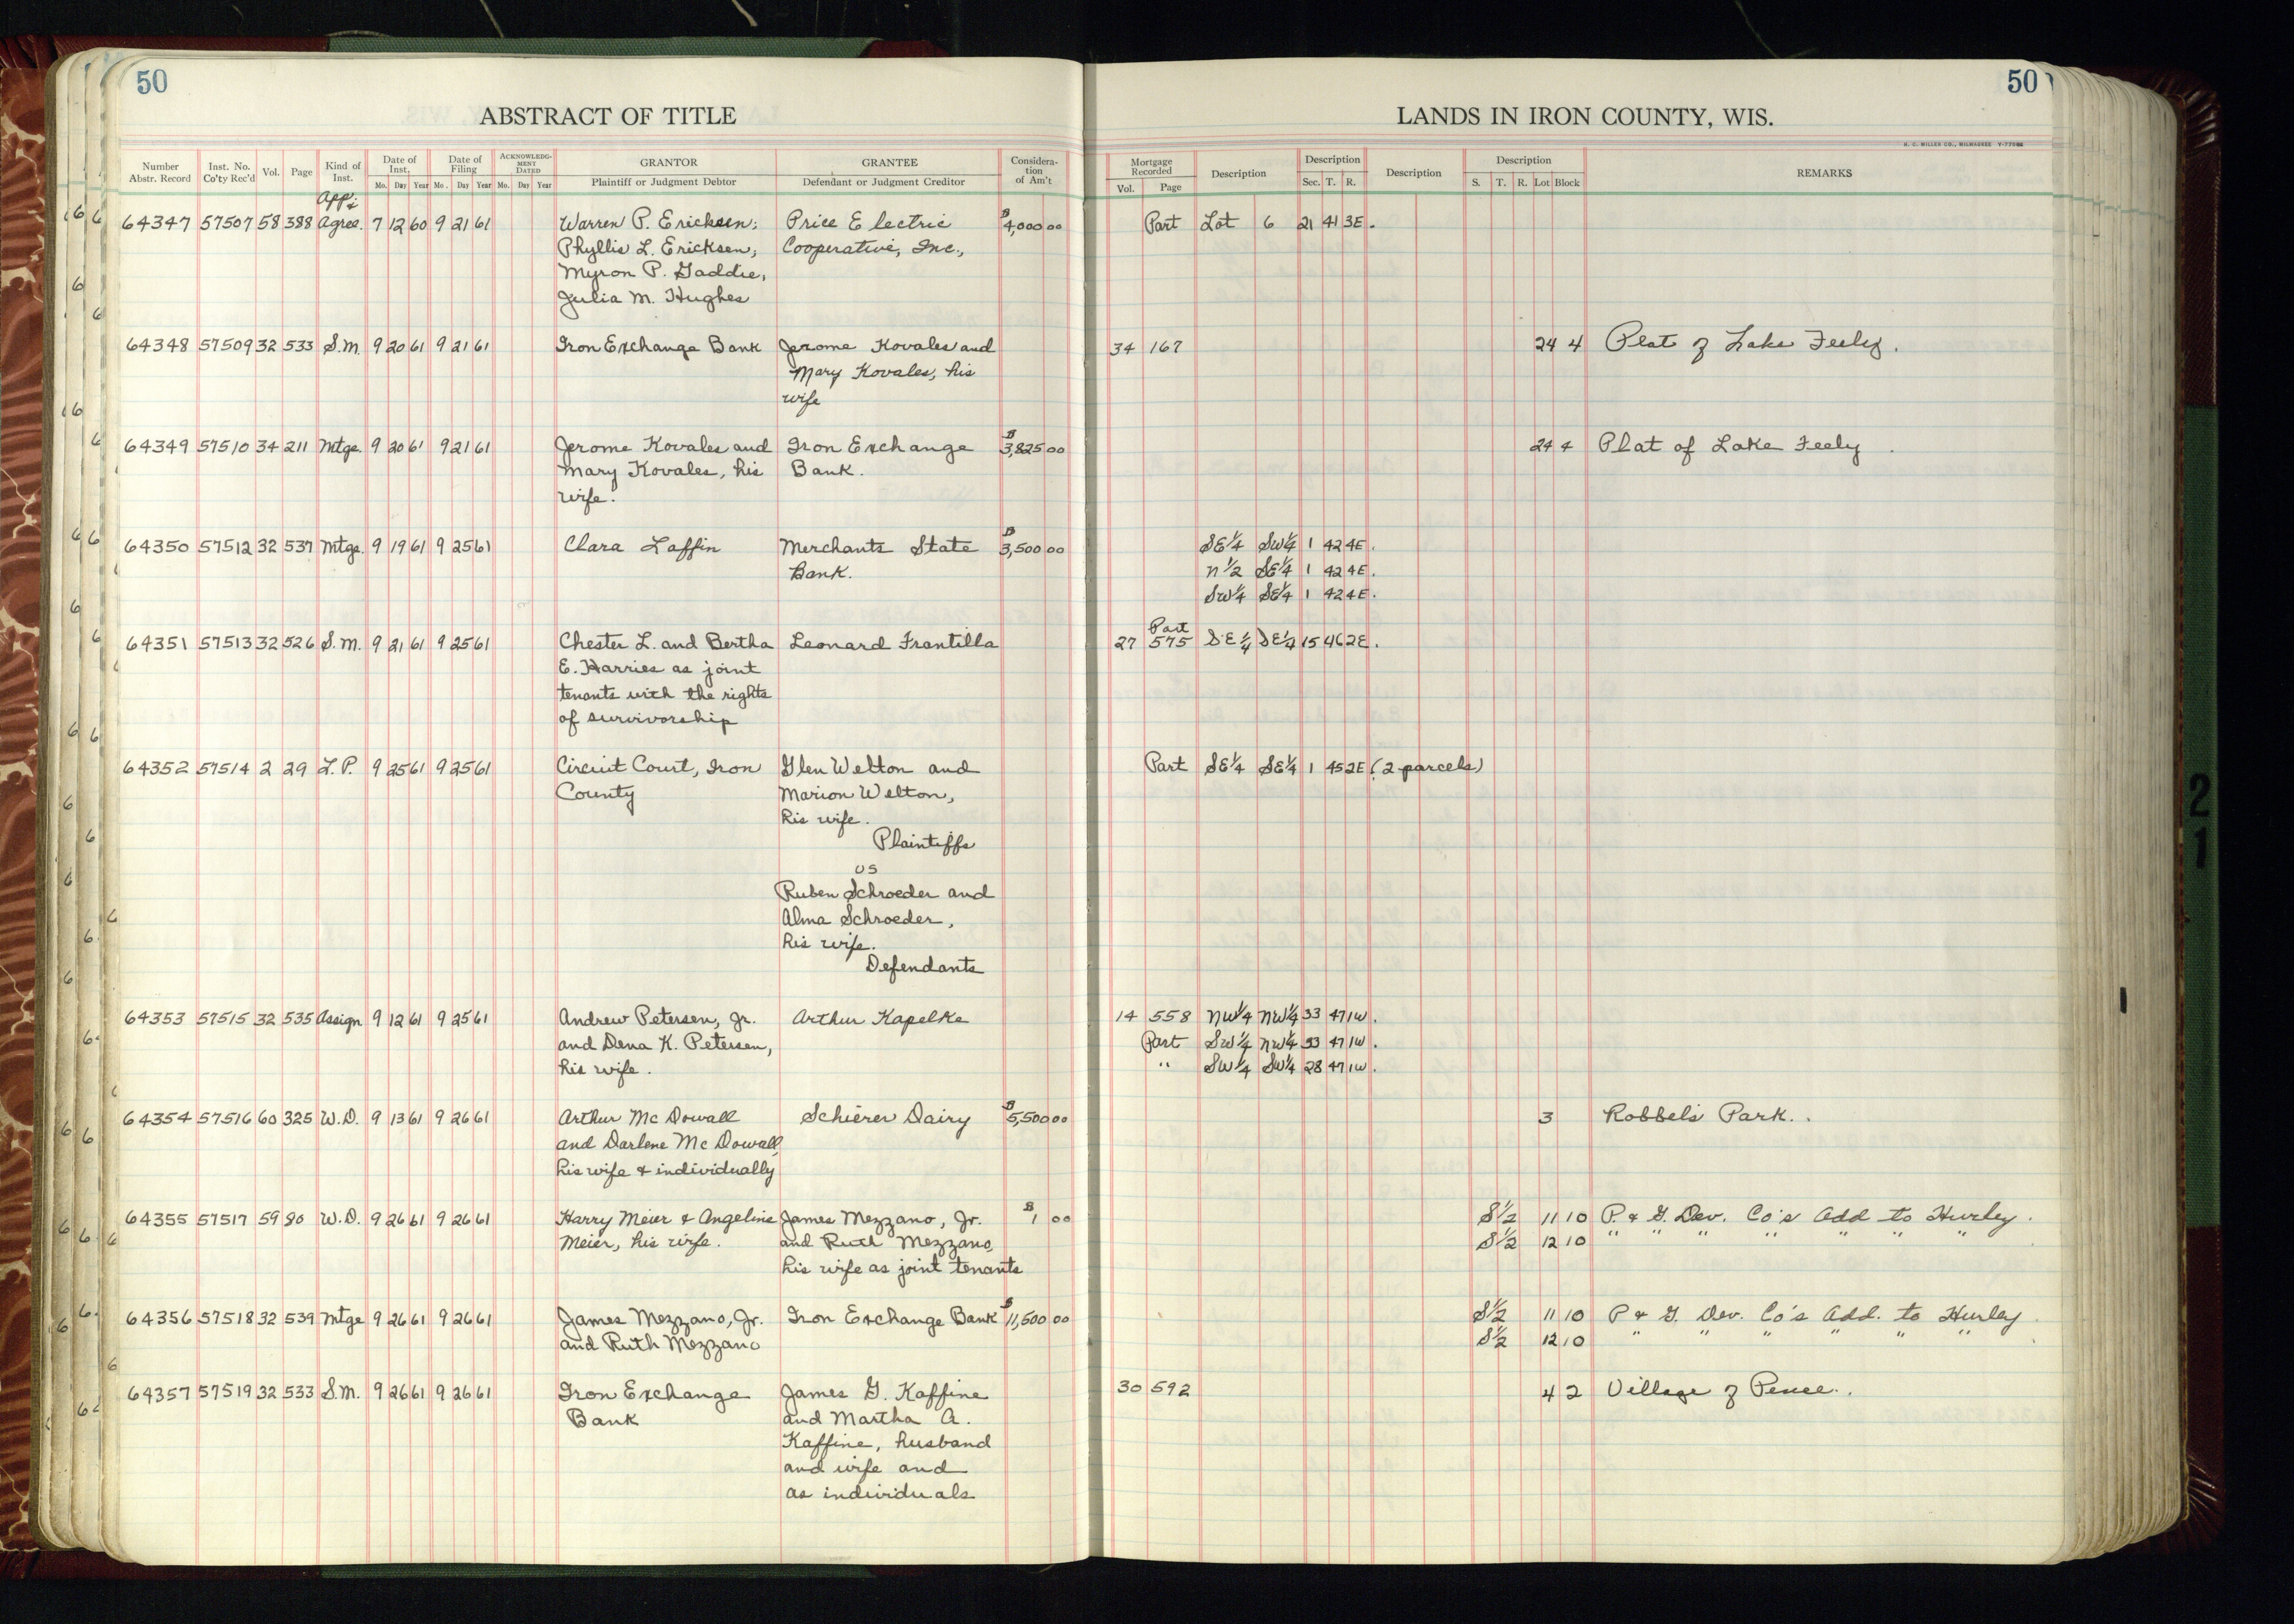 50
50
ABSTRACT OF TITLE
LANDS IN IRON COUNTY, WIS.
H. C. MILLER CO., MILWAUKEE
Number Abstr. Record Inst. No. Co'ty Rec'd Vol. Page Kind of Inst. Date of Inst. Mo. Day Year Date of Filing Mo. Day Year ACKNOWLEDGMENT DATED Mo. Day Year GRANTOR Plaintiff or Judgment Debtor GRANTEE Defendant or Judgment Creditor Consideration of Am't
Mortgage Recorded Vol. Page Description Description Sec. T. R. Description Description S. T. R. Lot Block REMARKS
64347 57507 58 388 Agree. 7 12 60 9 21 61 Warren P. Ericksen; Price Electric $4,000 00 Part Lot 6 21 41 3E.
Phyllis L. Ericksen, Cooperative, Inc.,
Myron P. Gaddie,
Julia M. Hughes
64348 57509 32 533 S.M. 9 20 61 9 21 61 Iron Exchange Bank Jerome Kovales and 34 167 24 4 Plat of Lake Feely.
Mary Kovales, his
wife
64349 57510 34 211 Mtge. 9 20 61 9 21 61 Jerome Kovales and Iron Exchange $3,825 00 24 4 Plat of Lake Feely
Mary Kovales, his Bank.
wife.
64350 57512 32 537 Mtge. 9 19 61 9 25 61 Clara Laffin Merchants State $3,500 00 SE¼ SW¼ 1 42 4E.
Bank. N½ SE¼ 1 42 4E.
SW¼ SE¼ 1 42 4E.
Part
64351 57513 32 526 S.M. 9 21 61 9 25 61 Chester L. and Bertha Leonard Frantilla 27 575 SE¼ SE¼ 15 46 2E.
E. Harries as joint
tenants with the rights
of survivorship
64352 57514 2 29 L.P. 9 25 61 9 25 61 Circuit Court, Iron Glen Welton and Part SE¼ SE¼ 1 45 2E (2 parcels)
County Marion Welton,
his wife.
Plaintiffs
vs
Ruben Schroeder and
Alma Schroeder,
his wife.
Defendants
64353 57515 32 535 Assign 9 12 61 9 25 61 Andrew Petersen, Jr. Arthur Kapelke 14 558 NW¼ NW¼ 33 47 1W.
and Dena K. Petersen, Part SW¼ NW¼ 33 47 1W.
his wife. " SW¼ SW¼ 28 47 1W.
64354 57516 60 325 W.D. 9 13 61 9 26 61 Arthur McDowall Schierer Dairy $5,500 00 3 Robbel's Park.
and Darlene McDowall,
his wife & individually
64355 57517 59 80 W.D. 9 26 61 9 26 61 Harry Meier & Angeline James Mezzano, Jr. $1 00 S½ 11 10 P. & G. Dev. Co's Add to Hurley.
Meier, his wife. and Ruth Mezzano, S½ 12 10 " " " " " " "
his wife as joint tenants
64356 57518 32 539 Mtge 9 26 61 9 26 61 James Mezzano, Jr. Iron Exchange Bank $11,500 00 S½ 11 10 P & G. Dev. Co's Add. to Hurley
and Ruth Mezzano S½ 12 10 " " " " " "
64357 57519 32 533 S.M. 9 26 61 9 26 61 Iron Exchange James G. Kaffine 30 592 4 2 Village of Pence.
Bank and Martha A.
Kaffine, husband
and wife and
as individuals
2
1